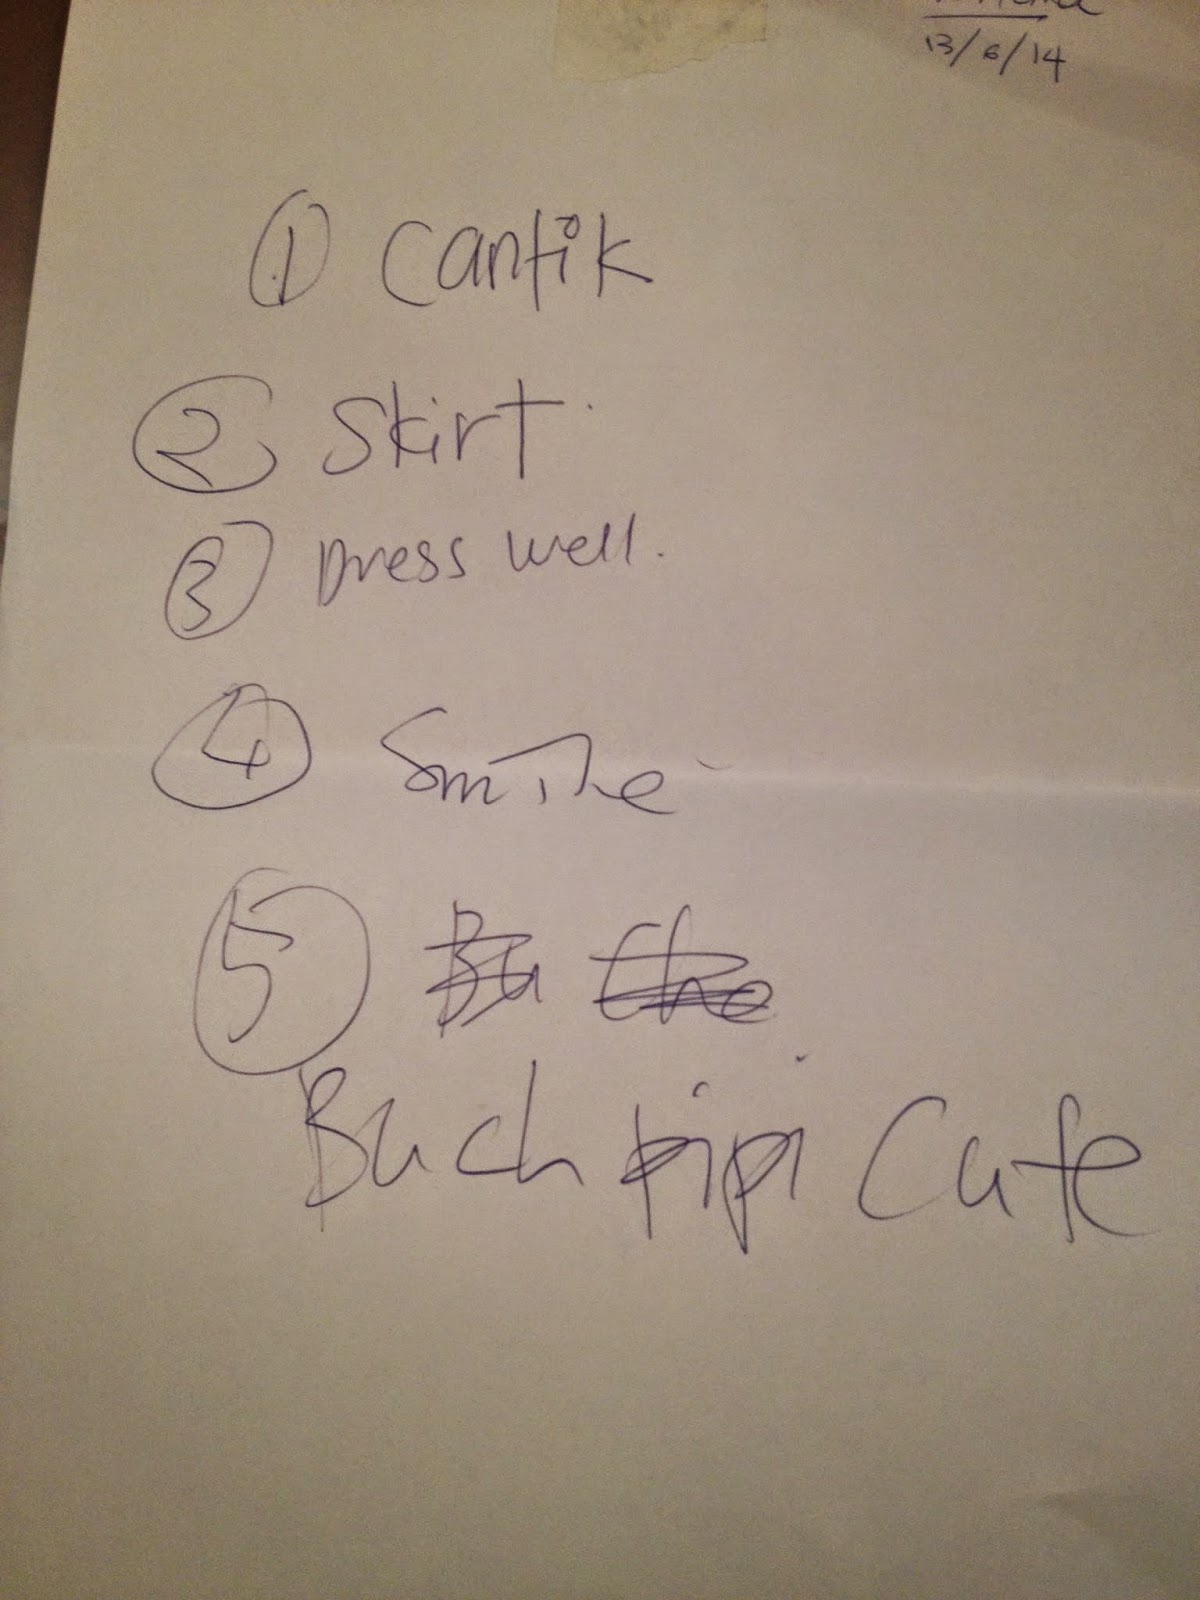 13/6/14
① Cantik
② Skirt.
③ Dress well.
④ Smile
⑤
Buch pipi Cute